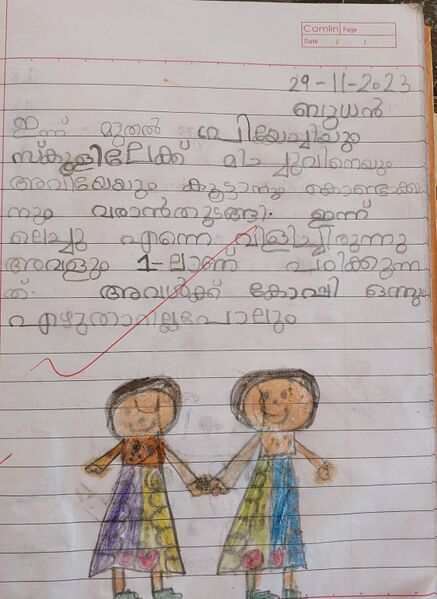 Camlin Page
Date / /
29-11-2023
ബുധൻ
ഇന്ന് മുതൽ
സ്കൂളിലേക്ക് മിച്ചുവിനെയും
കൂട്ടാനും കൊണ്ടാക്ക
നും വരാൻതുടങ്ങി. ഇന്ന്
ലെച്ചു എന്നെ വിളിച്ചിരുന്നു
അവളും 1-ലാണ് പഠിക്കുന്ന
ത്. അവൾക്ക് കോഷി ഒന്നും
എഴുതാനില്ലപോലും